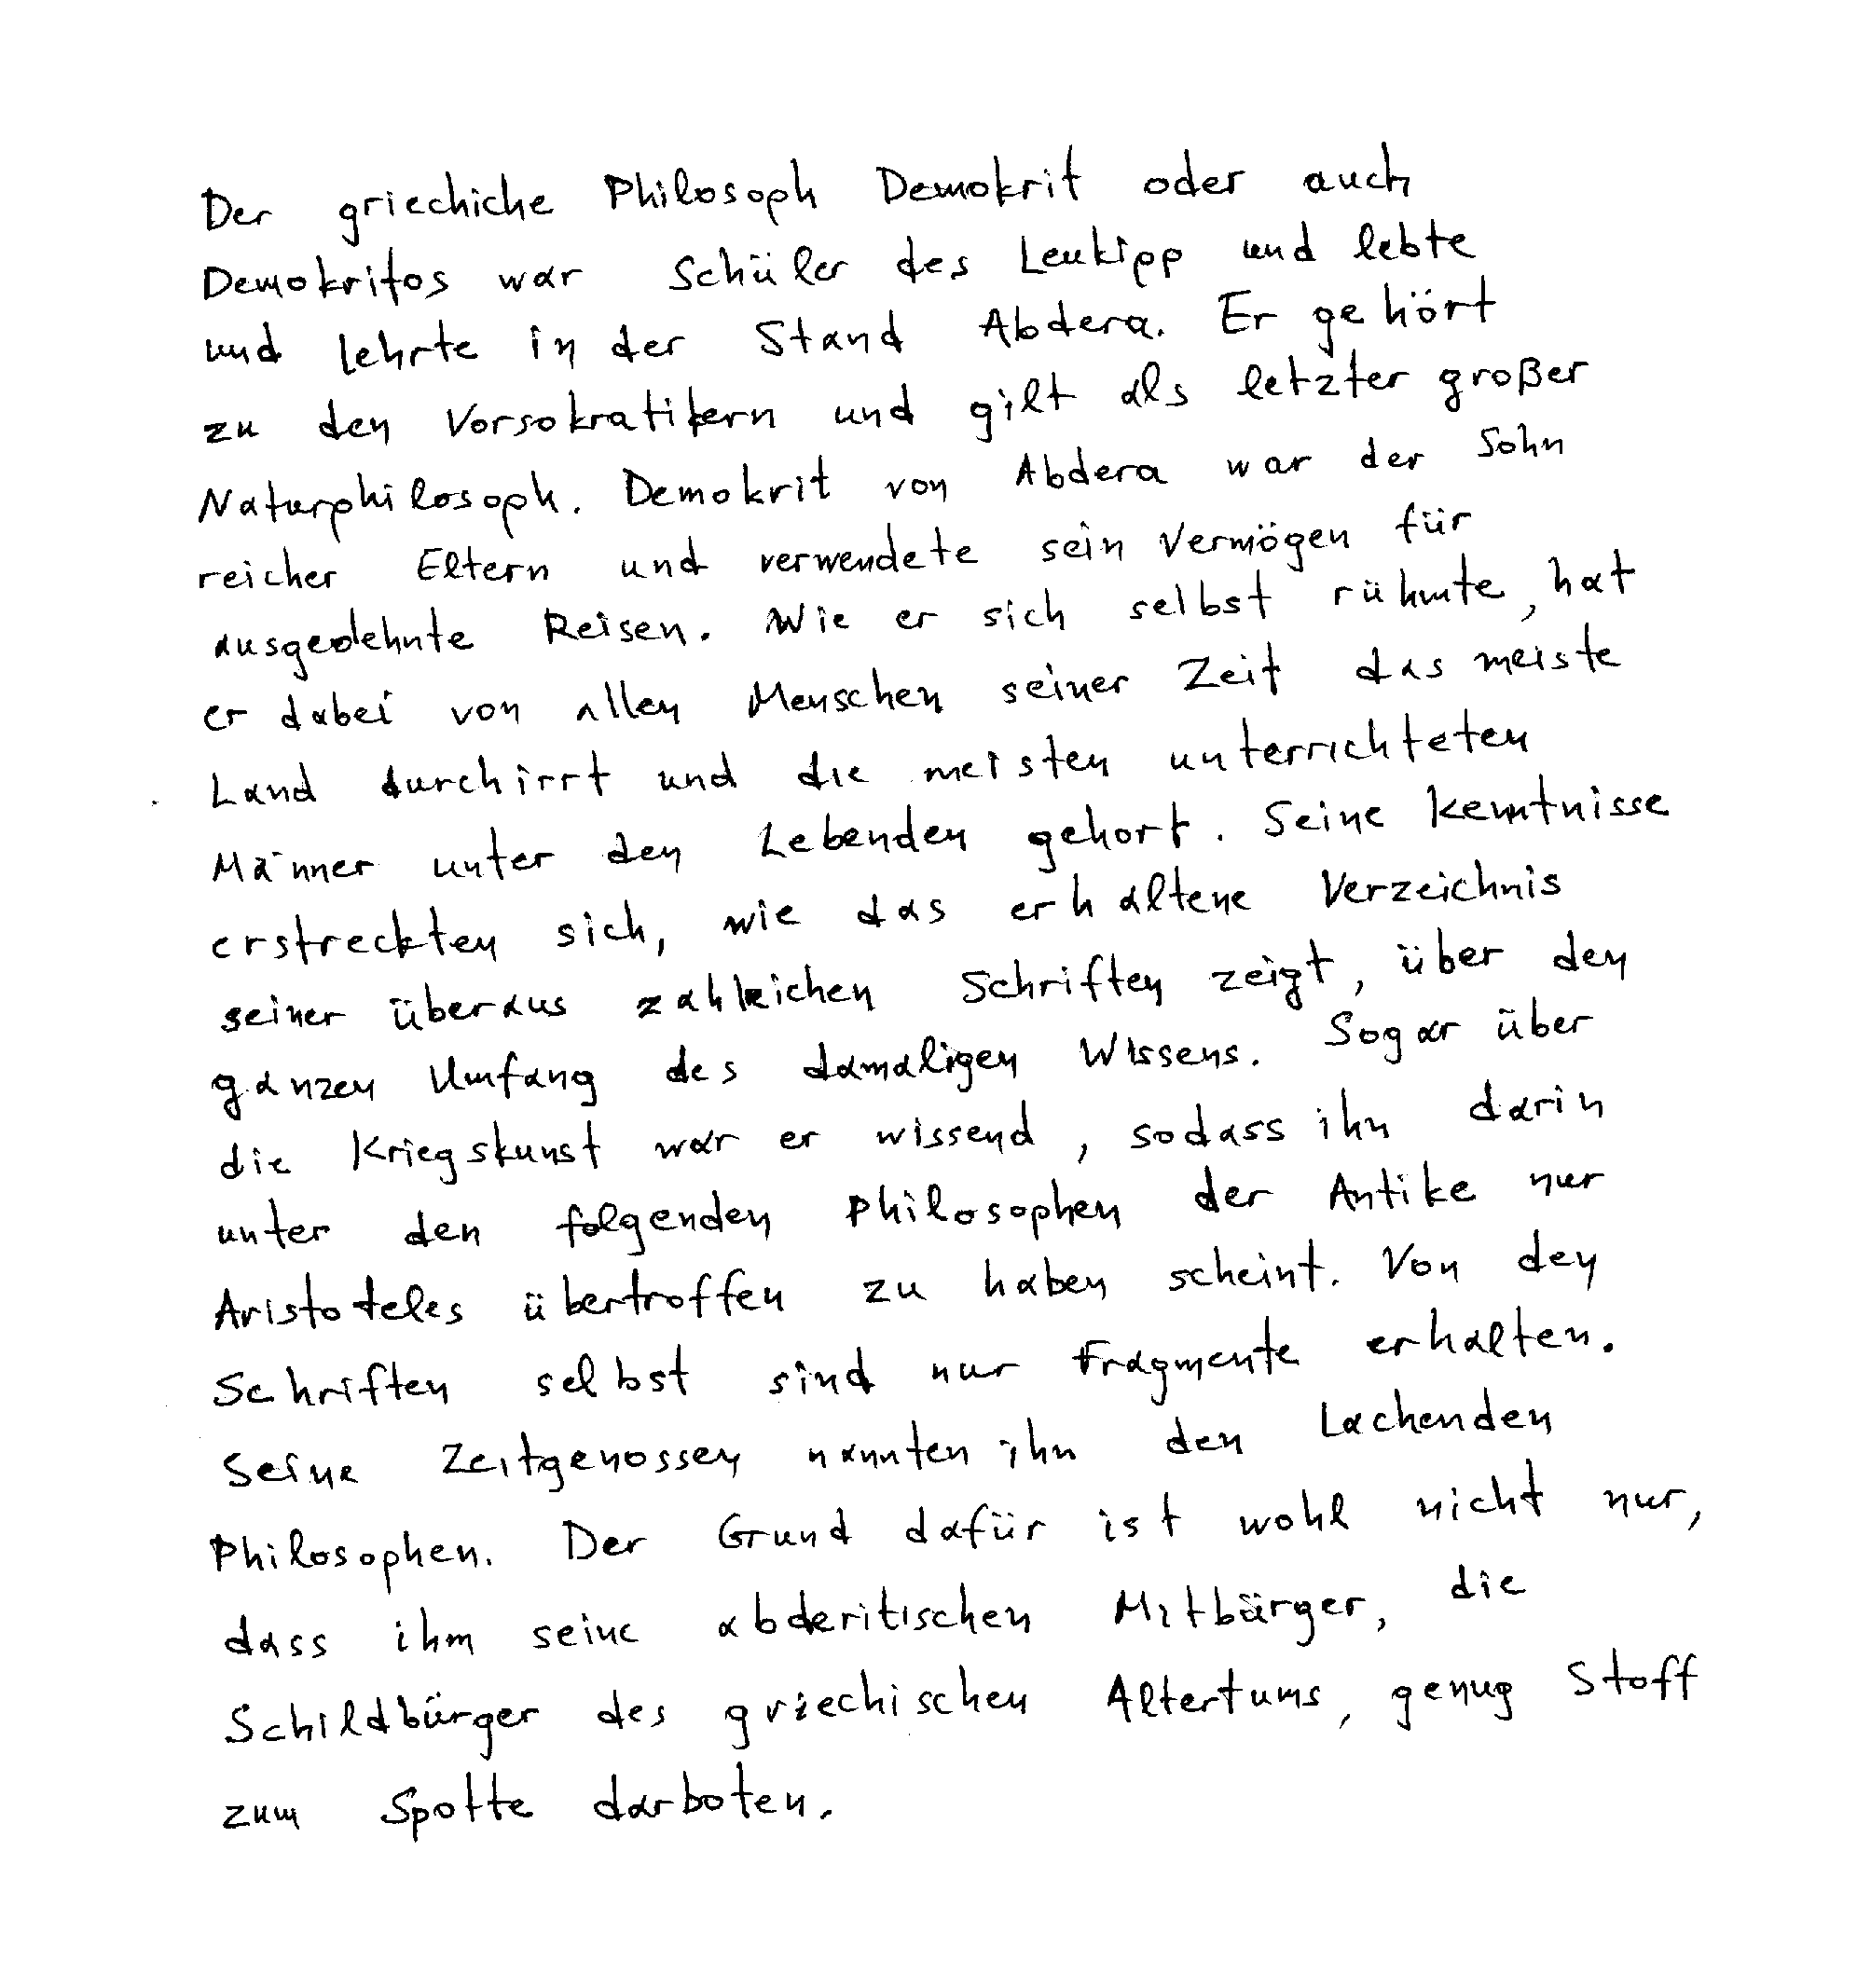 Der griechiche Philosoph Demokrit oder auch
Demokritos war Schüler des Leukipp und lebte
und lehrte in der Stand Abdera. Er gehört
zu den Vorsokratikern und gilt als letzter großer
Naturphilosoph. Demokrit von Abdera war der Sohn
reicher Eltern und verwendete sein Vermögen für
ausgedehnte Reisen. Wie er sich selbst rühmte, hat
er dabei von allen Menschen seiner Zeit das meiste
Land durchirrt und die meisten unterrichteten
Männer unter den Lebenden gehort. Seine Kenntnisse
erstreckten sich, wie das erhaltene Verzeichnis
seiner überaus zahlreichen Schriften zeigt, über den
ganzen Umfang des damaligen Wissens. Sogar über
die Kriegskunst war er wissend, sodass ihn darin
unter den folgenden Philosophen der Antike nur
Aristoteles übertroffen zu haben scheint. Von den
Schriften selbst sind nur Fragmente erhalten.
Seine Zeitgenossen nannten ihn den Lachenden
Philosophen. Der Grund dafür ist wohl nicht nur,
dass ihm seine abderitischen Mitbürger, die
Schildbürger des griechischen Altertums, genug Stoff
zum Spotte darboten.